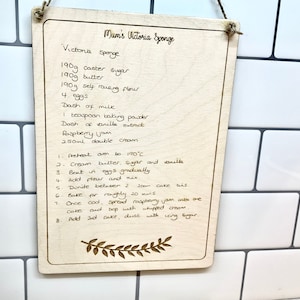 Mum's Victoria Sponge
Victoria Sponge
190g caster sugar
190g butter
190g self raising flour
4 eggs
Dash of milk
1 teaspoon baking powder
Dash of vanilla extract
Raspberry jam
250ml double cream
1. Preheat oven to 190°C
2. Cream butter, sugar and vanilla
3. Beat in eggs gradually
4. Add flour and mix
5. Divide between 2 20cm cake tins
6. Bake for roughly 20 mins
7. Once cool, spread raspberry jam onto one
cake and top with whipped cream
8. Add 2nd cake, dust with icing sugar